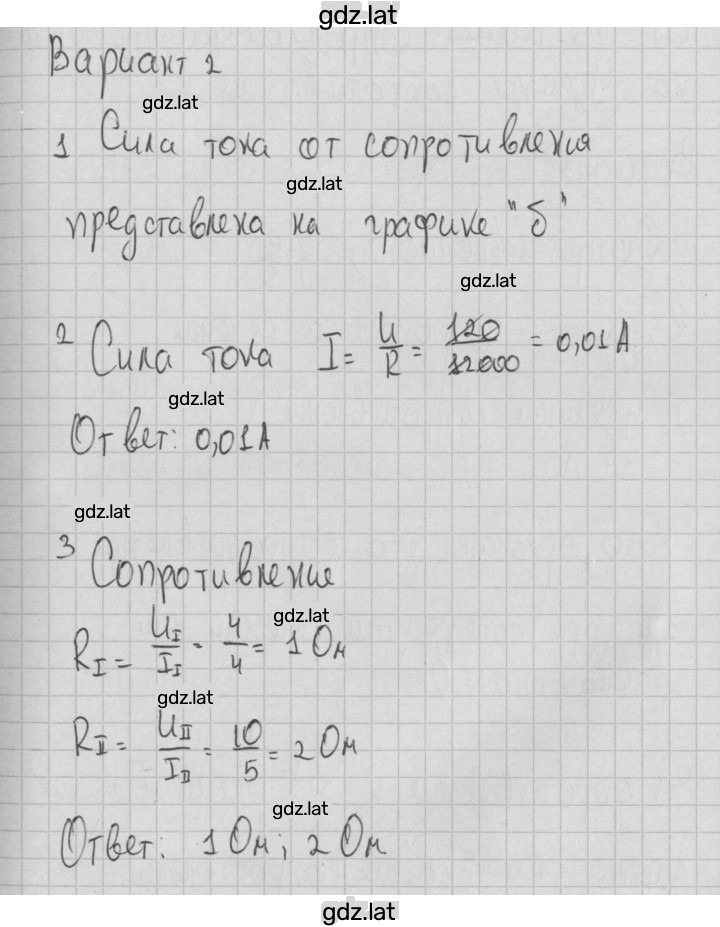 gdz.lat
Вариант 2
gdz.lat
1 Сила тока от сопротивления
gdz.lat
представлена на графике "б"
gdz.lat
2 Сила тока I = U/R = 120/12000 = 0,01 А
gdz.lat
Ответ: 0,01 А
gdz.lat
3 Сопротивление
gdz.lat
R_I = U_I/I_I = 4/4 = 1 Ом
gdz.lat
R_II = U_II/I_II = 10/5 = 2 Ом
gdz.lat
Ответ: 1 Ом; 2 Ом
gdz.lat